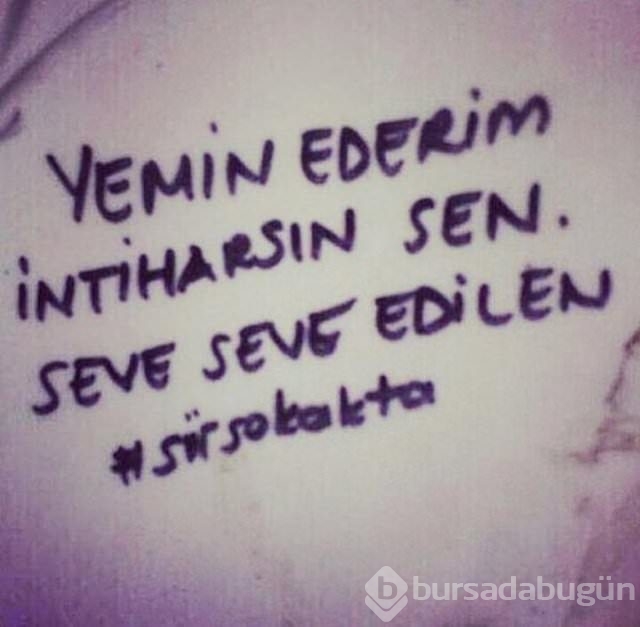 YEMİN EDERİM
İNTİHARSIN SEN.
SEVE SEVE EDİLEN
#şiirsokakta
b bursadabugün